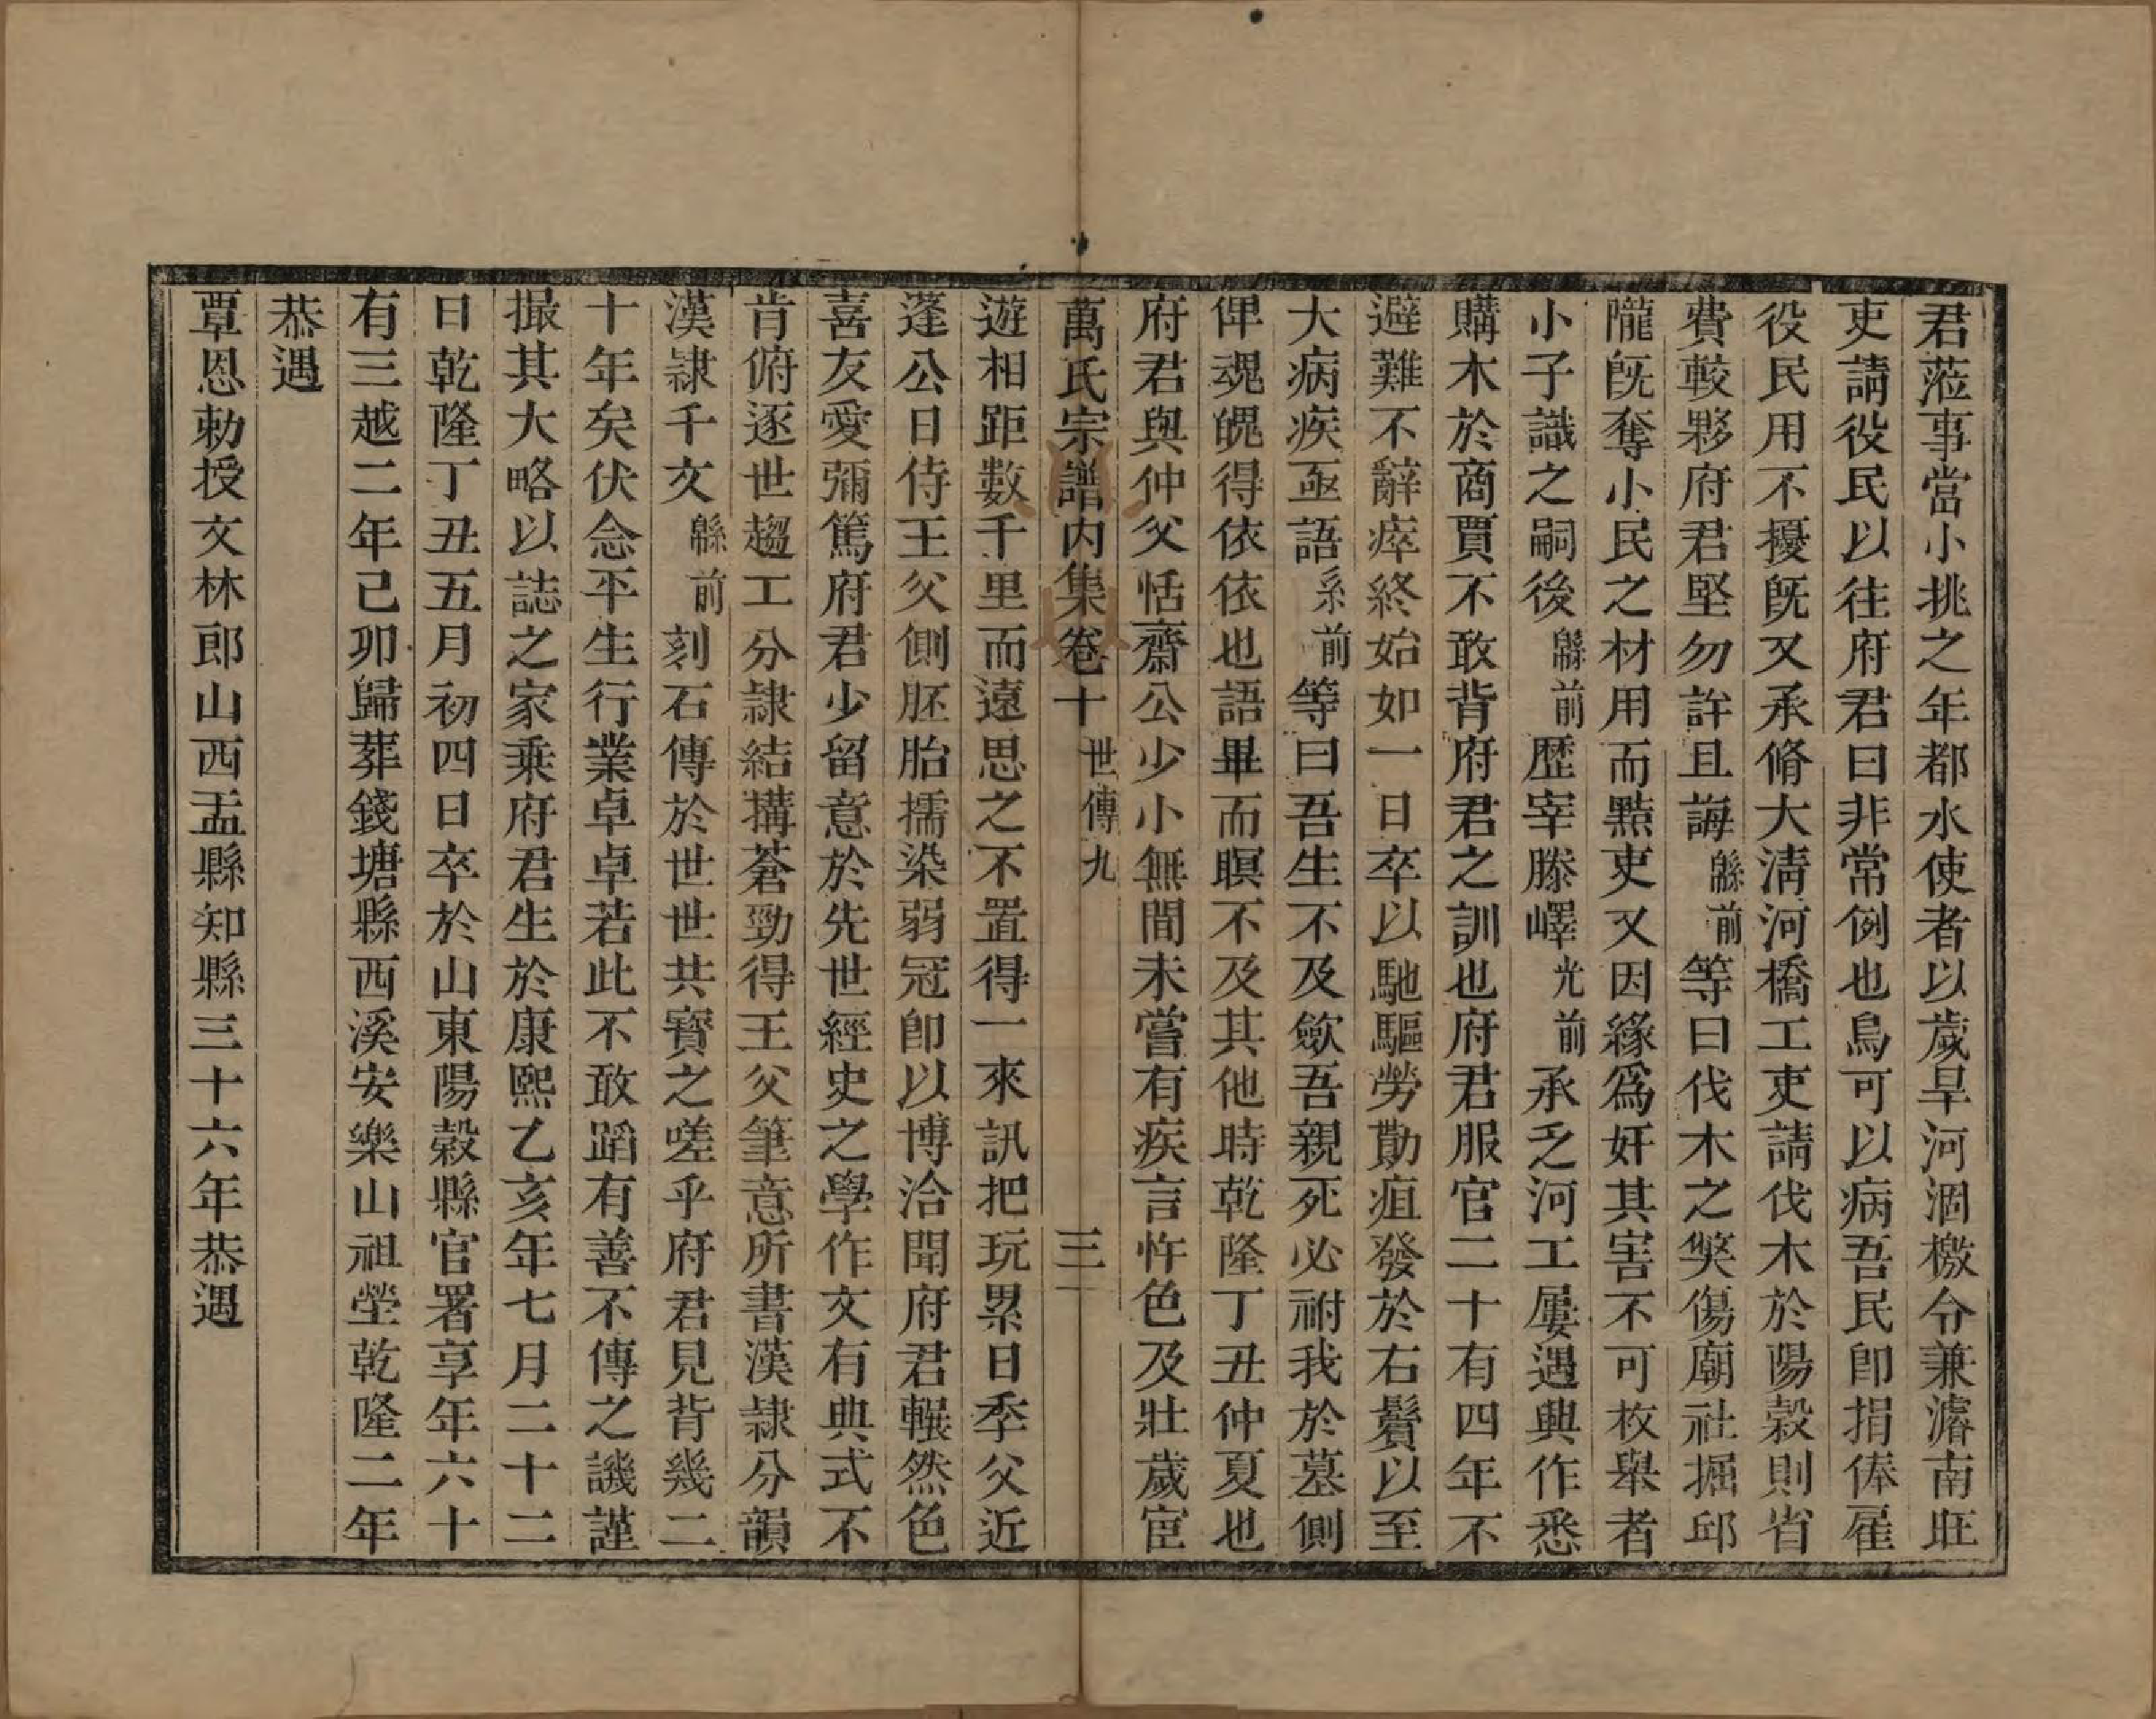 君蒞事當小挑之年都水使者以歲旱河涸檄令兼濬南旺
吏請役民以往府君曰非常例也烏可以病吾民卽捐俸雇
役民用不擾旣又承脩大淸河橋工吏請伐木於陽穀則省
費較夥府君堅勿許且誨縣前等曰伐木之獘傷廟社掘邱
隴旣奪小民之材用而黠吏又因緣爲奸其害不可枚舉者
小子識之嗣後縣前歷宰滕嶧光前承乏河工屢遇興作悉
購木於商賈不敢背府君之訓也府君服官二十有四年不
避難不辭瘁終始如一日卒以馳驅勞勩疽發於右鬢以至
大病疾亟語系前等曰吾生不及斂吾親死必祔我於墓側
俾魂魄得依依也語畢而瞑不及其他時乾隆丁丑仲夏也
府君與仲父恬齋公少小無間未嘗有疾言忤色及壯歲宦
萬氏宗譜內集卷十 世傳九 三
遊相距數千里而遠思之不置得一來訊把玩累日季父近
蓬公日侍王父側胚胎擩染弱冠卽以博洽聞府君輾然色
喜友愛彌篤府君少留意於先世經史之學作文有典式不
肯俯逐世趨工分隸結搆蒼勁得王父筆意所書漢隸分韻
漢隸千文縣前刻石傳於世世共寶之嗟乎府君見背幾二
十年矣伏念平生行業卓卓若此不敢蹈有善不傳之譏謹
撮其大略以誌之家乘府君生於康熙乙亥年七月二十二
日乾隆丁丑五月初四日卒於山東陽穀縣官署享年六十
有三越二年己卯歸葬錢塘縣西溪安樂山祖塋乾隆二年
恭遇
覃恩勅授文林郎山西盂縣知縣三十六年恭遇